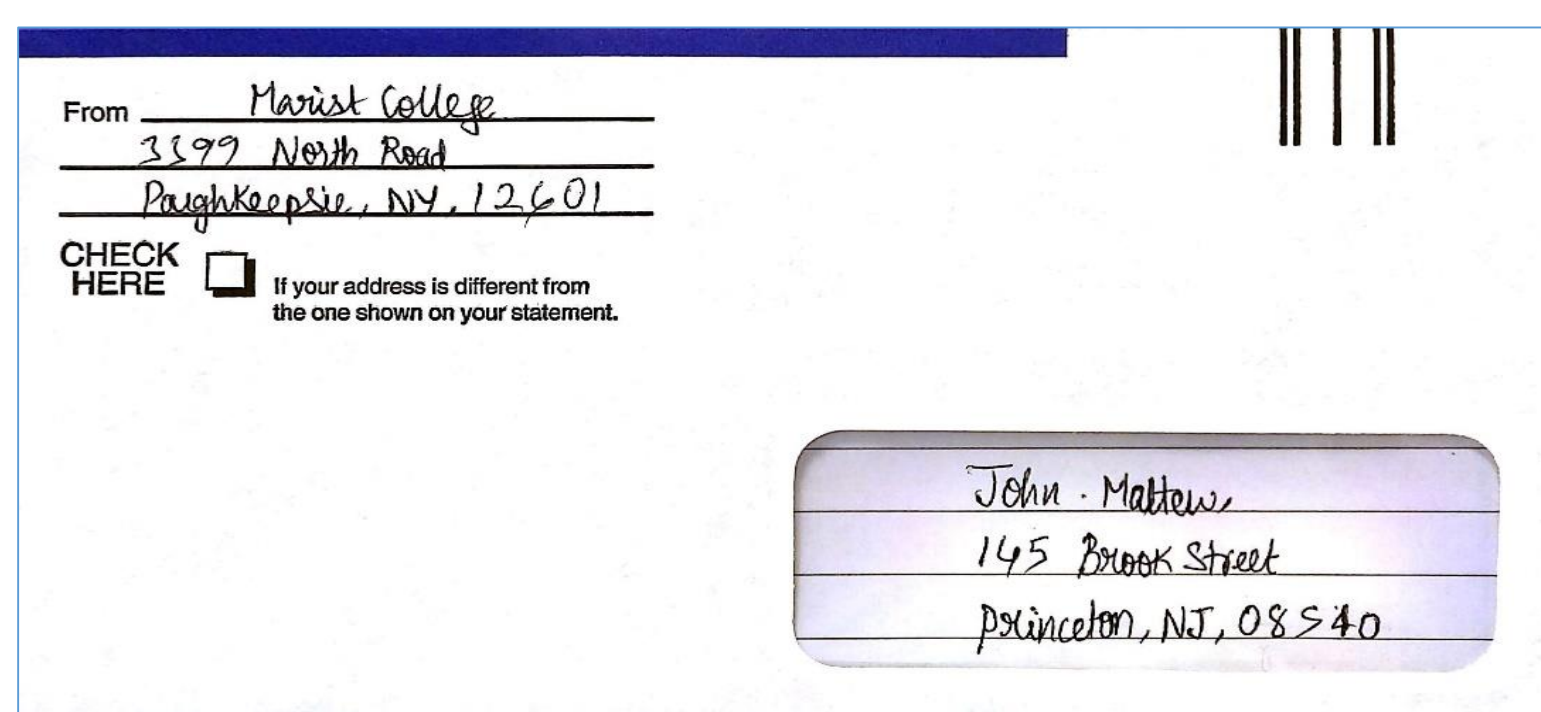 From Marist College
3399 North Road
Poughkeepsie, NY, 12601
CHECK
HERE
If your address is different from
the one shown on your statement.
John. Mattew,
145 Brook Street
Princeton, NJ, 08540